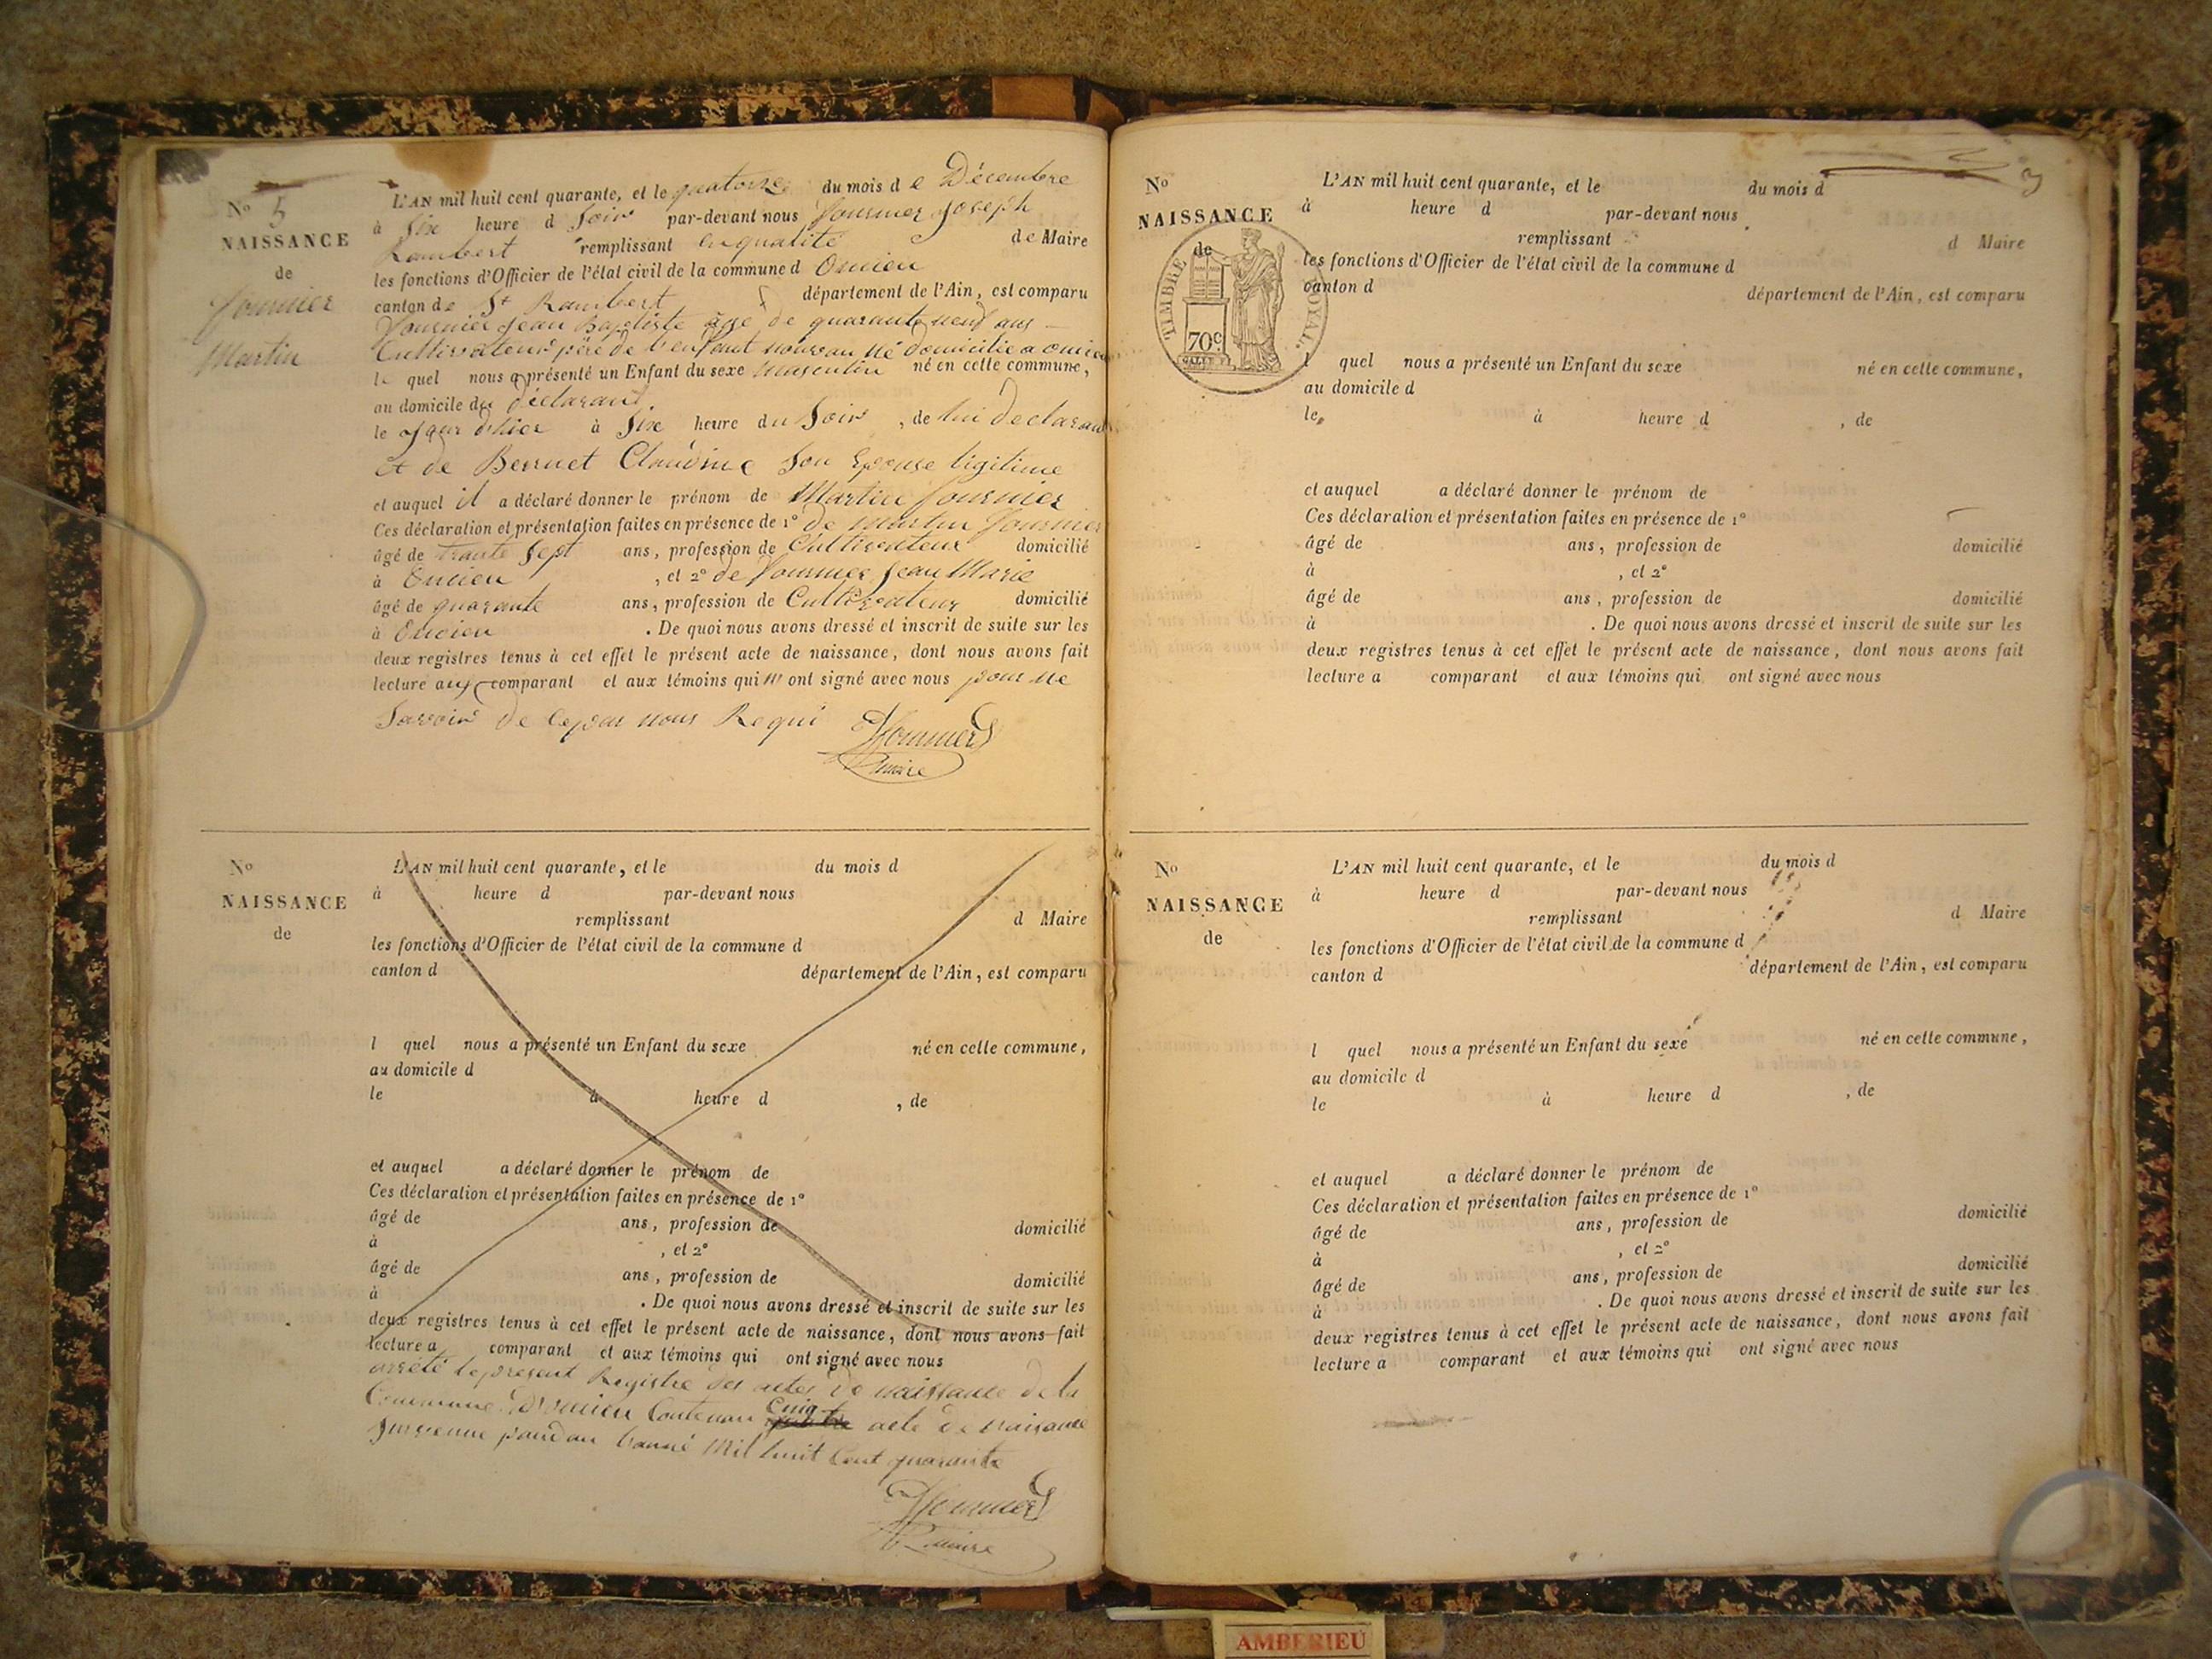 No 5
NAISSANCE
de
Fournier
Martin
L'AN mil huit cent quarante, et le quatorze du mois de Décembre
à Six heure d Soir par-devant nous Fournier Joseph
Rambert remplissant en qualité de Maire
les fonctions d'Officier de l'état civil de la commune d Oncieu
canton de St Rambert département de l'Ain, est comparu
Fournier Jean Baptiste âgé de quarante neuf ans
Cultivateur père de l'enfant nouveau né domicilié a oncieu
le quel nous a présenté un Enfant du sexe Masculin né en cette commune,
au domicile du déclarant
le Jour d'hier à Six heure du Soir, de lui declarant
et de Berruet Claudine Son Epouse légitime
et auquel il a déclaré donner le prénom de Martin fournier
Ces déclaration et présentation faites en présence de 1° de Martin Fournier
âgé de trante Sept ans, profession de Cultivateur domicilié
à Oncieu, et 2° de Fournier Jean Marie
âgé de quarante ans, profession de Cultivateur domicilié
à Oncieu. De quoi nous avons dressé et inscrit de suite sur les
deux registres tenus à cet effet le présent acte de naissance, dont nous avons fait
lecture aux comparant et aux témoins qui n'ont signé avec nous pour ne
Savoir de ce par nous Requi
Fournier
maire
No
NAISSANCE
de
L'AN mil huit cent quarante, et le du mois d
à heure d par-devant nous
remplissant d Maire
les fonctions d'Officier de l'état civil de la commune d
canton d département de l'Ain, est comparu
l quel nous a présenté un Enfant du sexe né en cette commune,
au domicile d
le à heure d , de
et auquel a déclaré donner le prénom de
Ces déclaration et présentation faites en présence de 1°
âgé de ans, profession de domicilié
à , et 2°
âgé de ans, profession de domicilié
à . De quoi nous avons dressé et inscrit de suite sur les
deux registres tenus à cet effet le présent acte de naissance, dont nous avons fait
lecture a comparant et aux témoins qui ont signé avec nous
arrété le present Registre des actes de naissance de la
Commune D'oncieu Contenan Cinq acte de naisance
Survenue pandan l'anné Mil huit Cent quarante
Fournier
maire
No
NAISSANCE
de
TIMBRE ROYAL.
70c
L'AN mil huit cent quarante, et le du mois d
à heure d par-devant nous
remplissant d Maire
les fonctions d'Officier de l'état civil de la commune d
canton d département de l'Ain, est comparu
l quel nous a présenté un Enfant du sexe né en cette commune,
au domicile d
le à heure d , de
et auquel a déclaré donner le prénom de
Ces déclaration et présentation faites en présence de 1°
âgé de ans, profession de domicilié
à , et 2°
âgé de ans, profession de domicilié
à . De quoi nous avons dressé et inscrit de suite sur les
deux registres tenus à cet effet le présent acte de naissance, dont nous avons fait
lecture a comparant et aux témoins qui ont signé avec nous
No
NAISSANCE
de
L'AN mil huit cent quarante, et le du mois d
à heure d par-devant nous
remplissant d Maire
les fonctions d'Officier de l'état civil de la commune d
canton d département de l'Ain, est comparu
l quel nous a présenté un Enfant du sexe né en cette commune,
au domicile d
le à heure d , de
et auquel a déclaré donner le prénom de
Ces déclaration et présentation faites en présence de 1°
âgé de ans, profession de domicilié
à , et 2°
âgé de ans, profession de domicilié
à . De quoi nous avons dressé et inscrit de suite sur les
deux registres tenus à cet effet le présent acte de naissance, dont nous avons fait
lecture a comparant et aux témoins qui ont signé avec nous
AMBERIEU